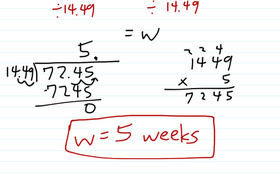 ÷14.49 ÷ 14.49
= w
5.
14.49 72.45
7245
0
2 2 4
1449
x 5
7245
w = 5 weeks